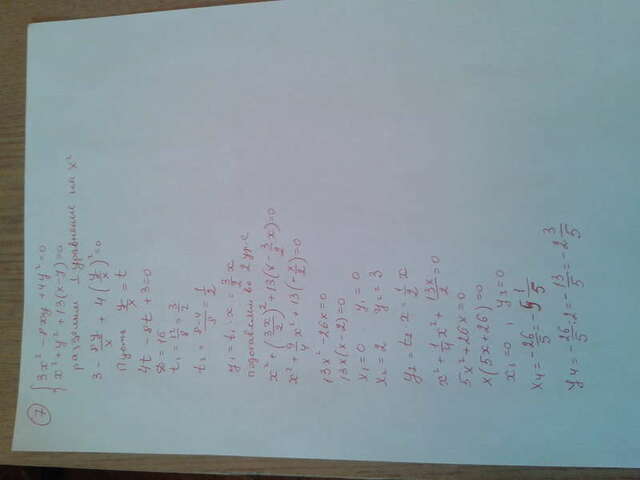 7
{ 3x² - 8xy + 4y² = 0
x² + y² + 13(x-y) = 0
разделим 1 уравнение на x²
3 - 8y/x + 4(y/x)² = 0
Пусть y/x = t
4t - 8t + 3 = 0
D = 16
t₁ = 12/8 = 3/2
t₂ = 8-4/8 = 1/2
y₁ = t₁·x = 3/2 x
подставляем во 2 ур-е
x² + (3x/2)² + 13(x - 3/2 x) = 0
x² + 9/4 x² + 13(-x/2) = 0
13x² - 26x = 0
13x(x-2) = 0
x₁ = 0 y₁ = 0
x₂ = 2 y₂ = 3
y₂ = t₂ x = 1/2 x
x² + 1/4 x² + 13x/2 = 0
5x² + 26x = 0
x(5x+26) = 0
x₃ = 0; y₃ = 0
x₄ = -26/5 = 5 1/5
y₄ = -26/5 : 2 = -13/5 = -2 3/5